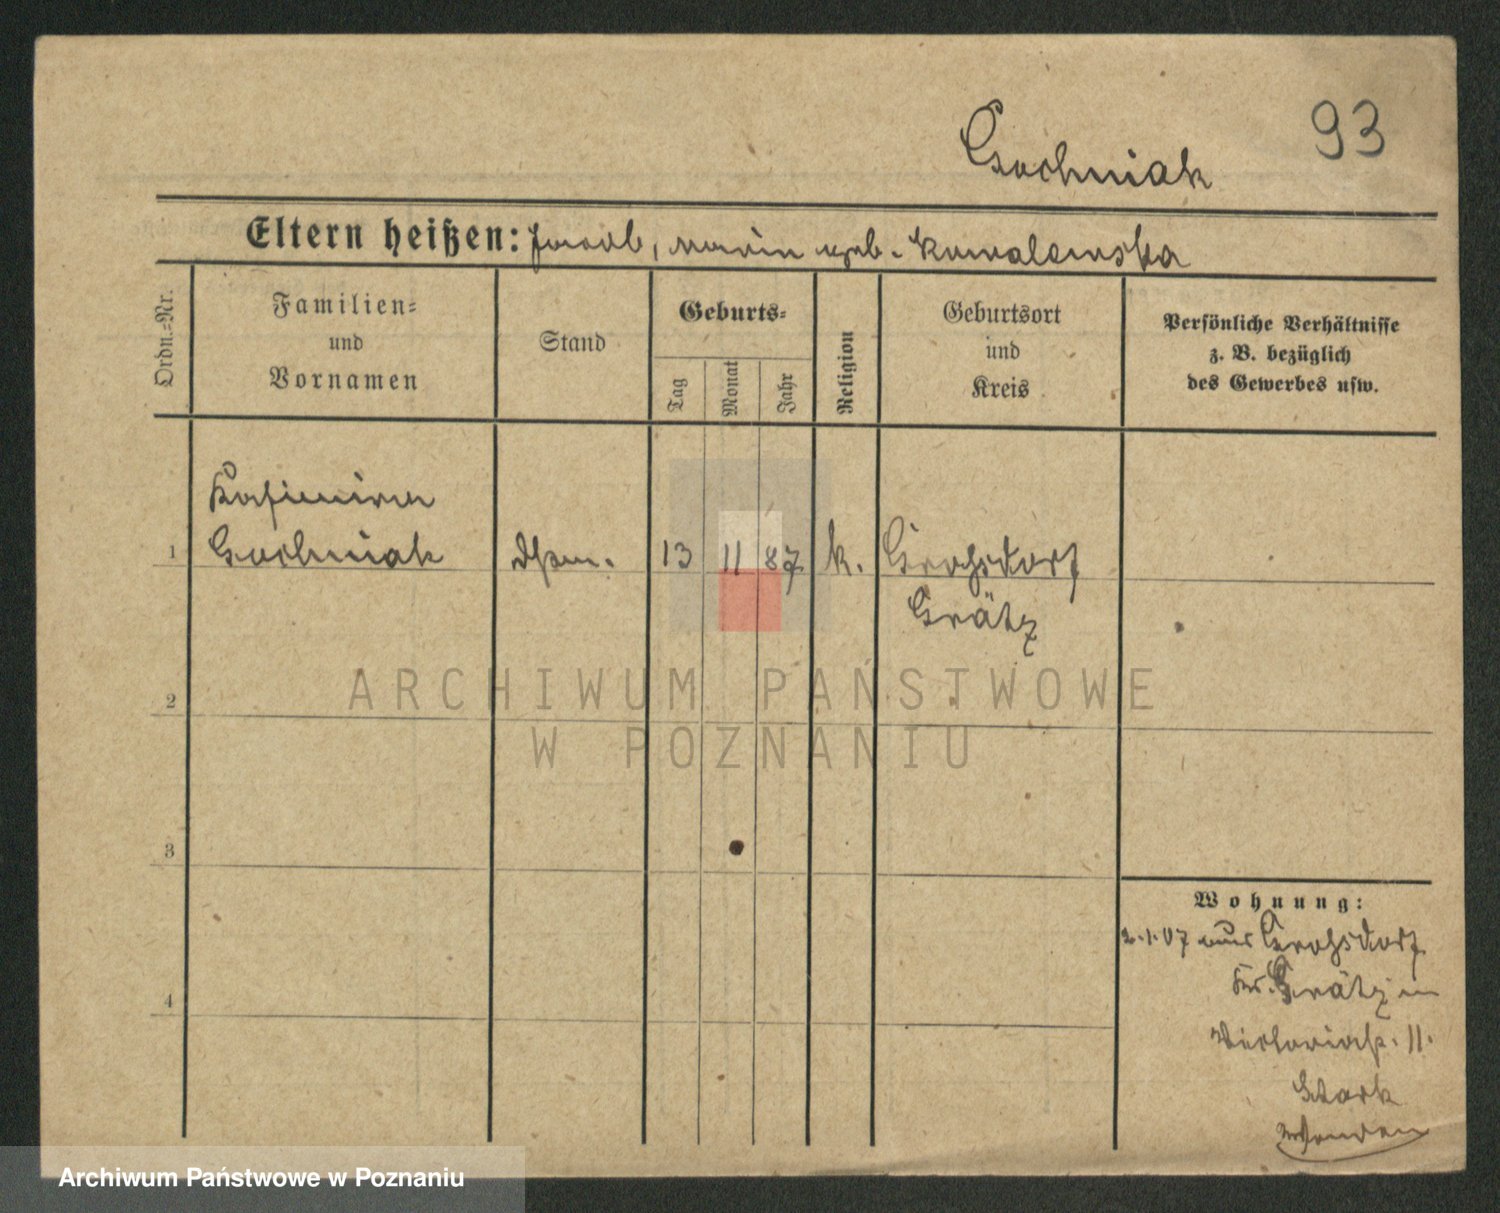 93
Gochniak
Eltern heißen: Jacob, Marie geb. Kowalewska
Ordn.-Nr.
Familien-
und
Vornamen
Stand
Geburts-
Tag
Monat
Jahr
Religion
Geburtsort
und
Kreis
Persönliche Verhältnisse
z. B. bezüglich
des Gewerbes usw.
Kasimira
1 Gochniak 13 11 87 k. Grossdorf
Grätz
2
3
4
Wohnung:
2.1.07 aus Grossdorf
Kr. Grätz in
Victoriastr. 11.
Stark
ARCHIWUM PAŃSTWOWE
W POZNANIU
Archiwum Państwowe w Poznaniu